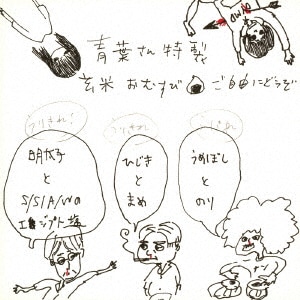 青葉さん特製
玄米 おむすび ご自由にどうぞ
うりきれ!
明太子
と
S/S/A/W の
エジプト塩
うりきれ
ひじき
と
まめ
うりきれ
うめぼし
と
のり